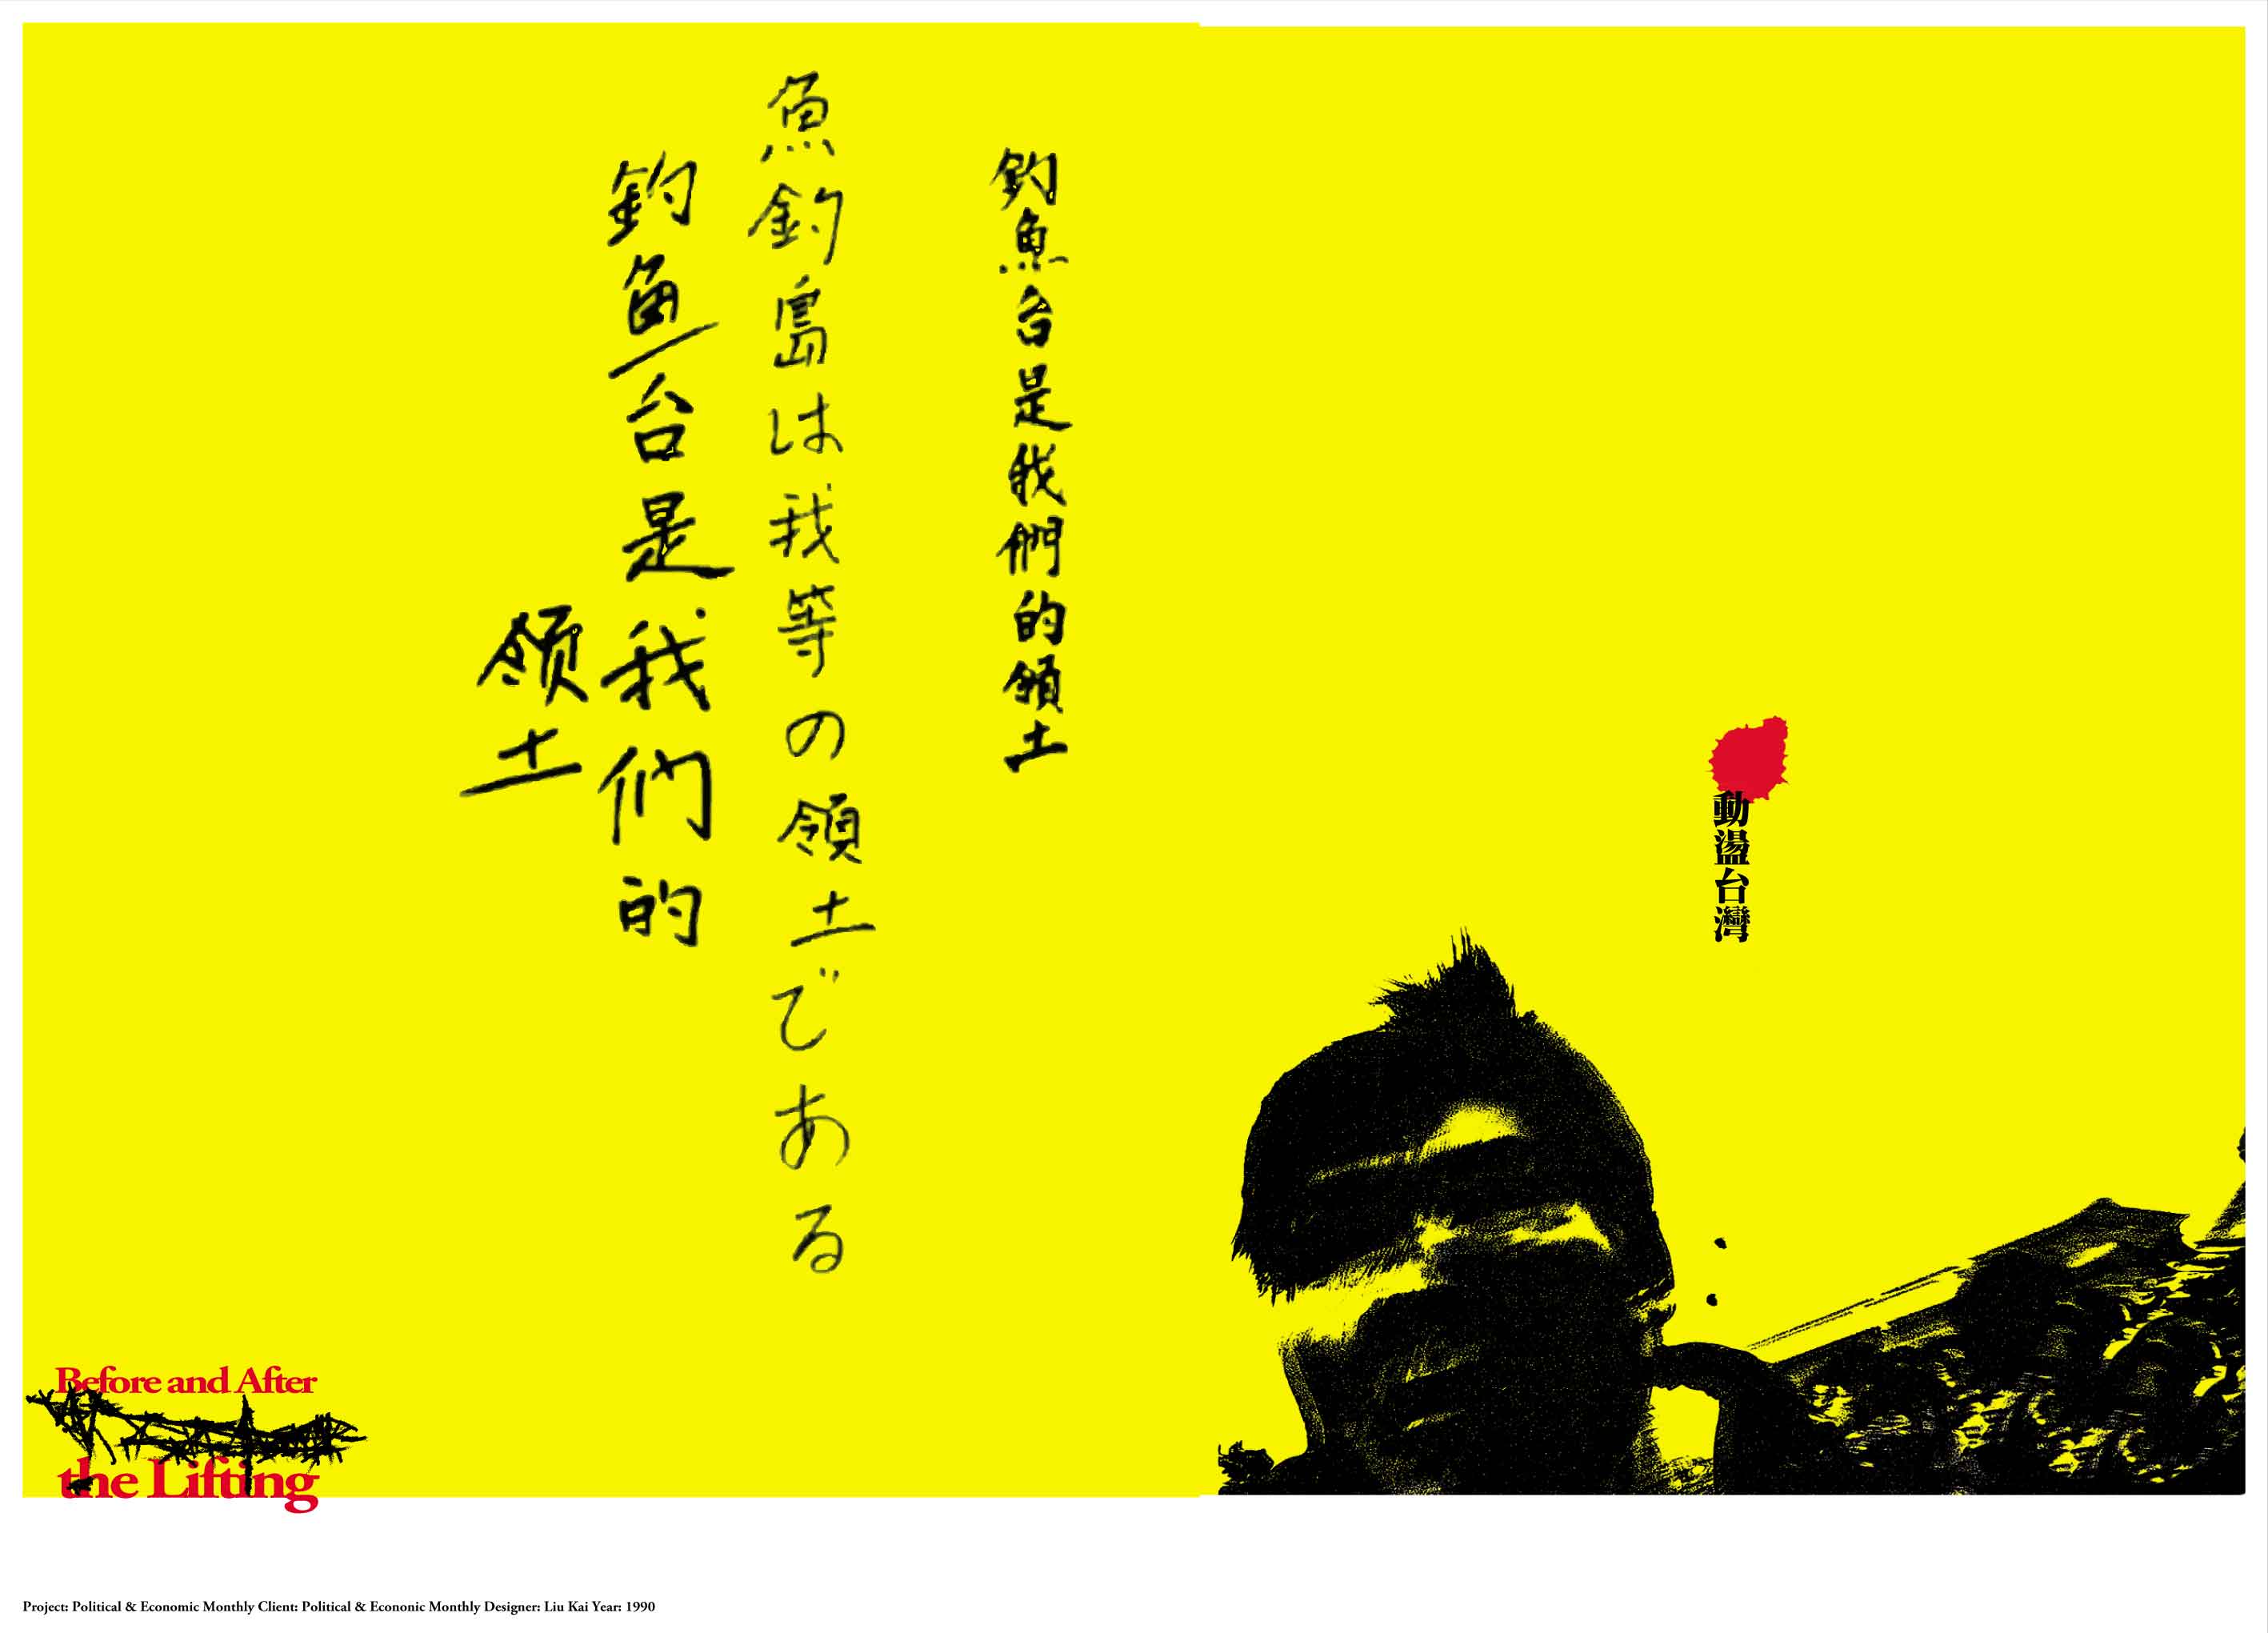 動盪台灣
釣魚台是我們的領土
魚釣島は我等の領土である
釣鱼台是我们的
领土
Before and After
the Lifting
Project: Political & Economic Monthly Client: Political & Econonic Monthly Designer: Liu Kai Year: 1990